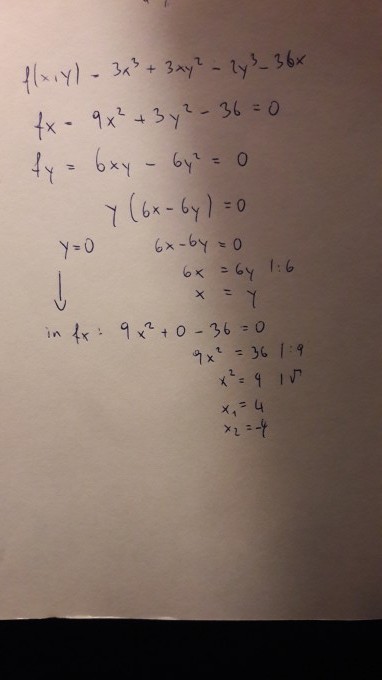 f(x,y) = 3x³ + 3xy² - 2y³ - 36x
fx = 9x² + 3y² - 36 = 0
fy = 6xy - 6y² = 0
y (6x - 6y) = 0
y=0 6x-6y = 0
6x = 6y |:6
x = y
↓
in fx: 9x² + 0 - 36 = 0
9x² = 36 |:9
x² = 4 |√
x₁ = 4
x₂ = -4